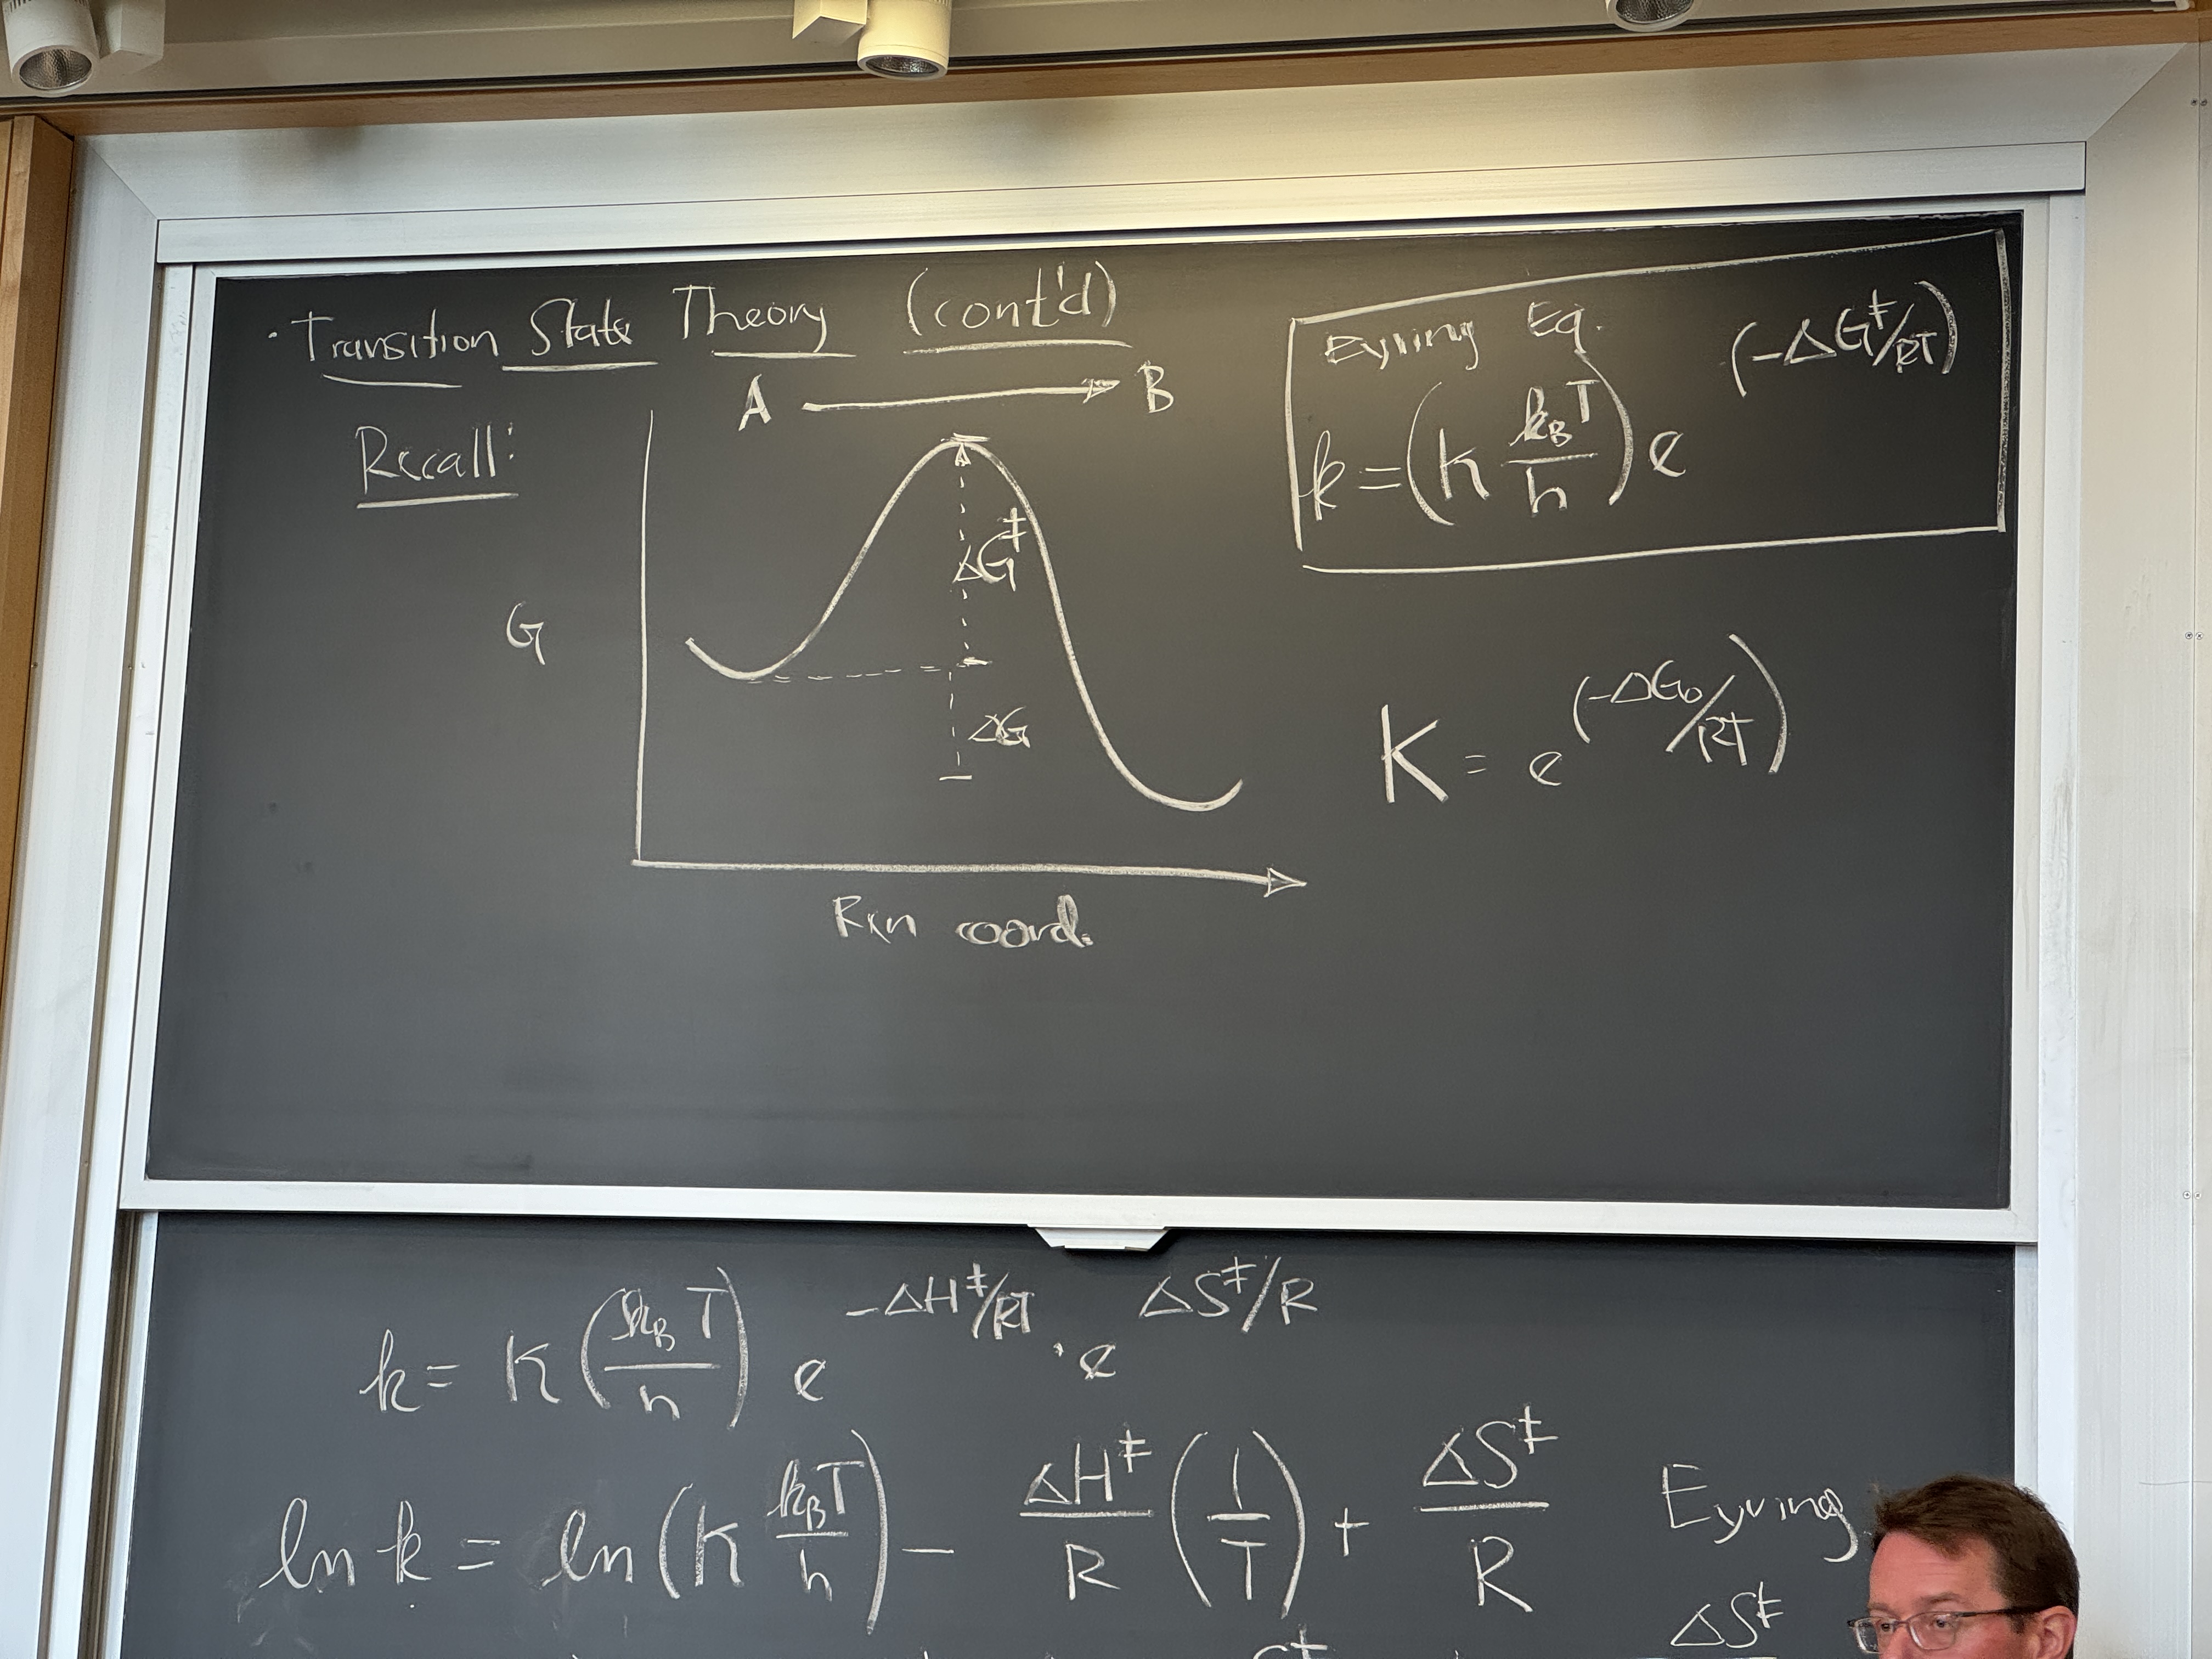 · Transition State Theory (cont'd)
A → B
Recall:
G
ΔG‡
ΔG
Rxn coord.
Eyring Eq.
k = (κ k_B T / h) e^(-ΔG‡/RT)
K = e^(-ΔG₀/RT)
k = κ (k_B T / h) e^-ΔH‡/RT · e^ΔS‡/R
ln k = ln (κ k_B T / h) - ΔH‡/R (1/T) + ΔS‡/R Eyring
ΔS‡